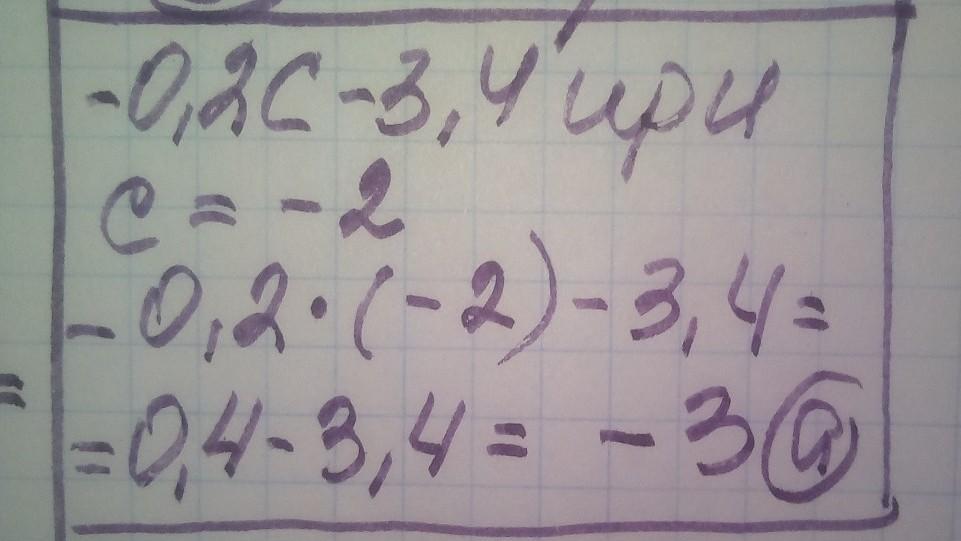 -0,2c -3,4 при
c = -2
-0,2·(-2)-3,4=
=0,4-3,4= -3 а